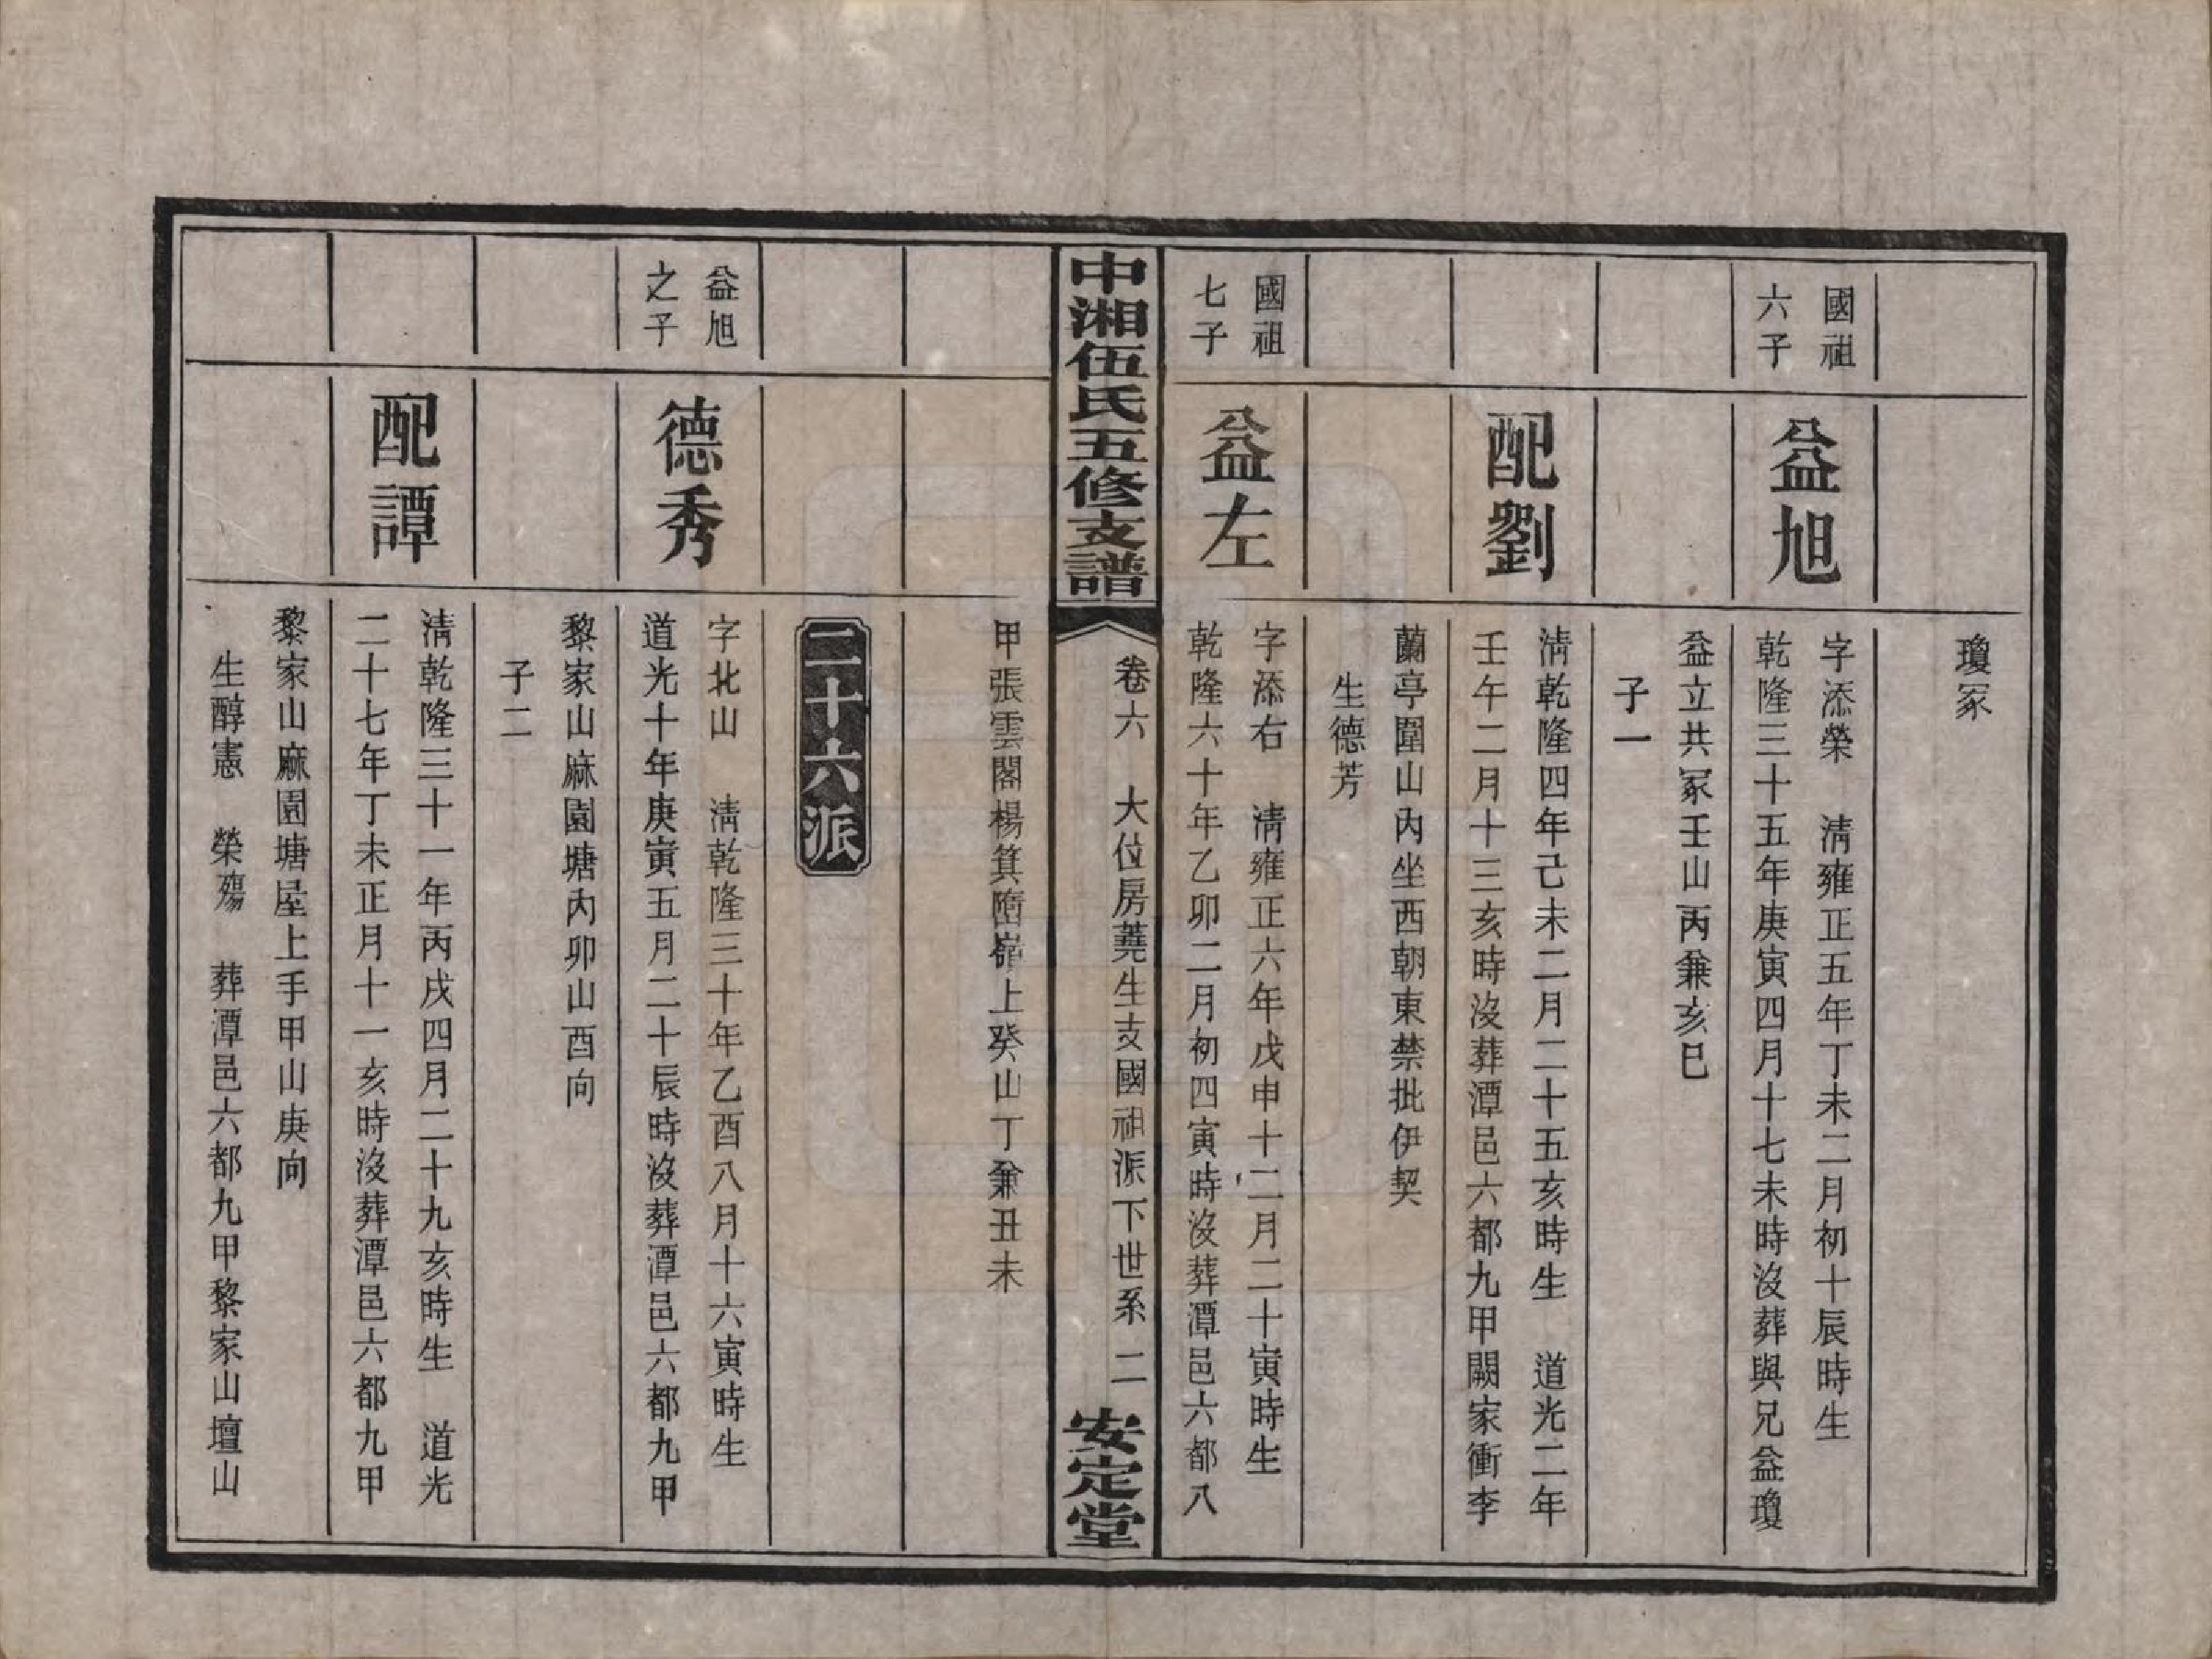 瓊冢
國祖
六子
益旭
字添榮　清雍正五年丁未二月初十辰時生
乾隆三十五年庚寅四月十七未時沒葬與兄益瓊
益立共冢壬山丙兼亥巳
子一
配劉
清乾隆四年己未二月二十五亥時生　道光二年
壬午二月十三亥時沒葬潭邑六都九甲闕家衝李
蘭亭圍山內坐西朝東禁批伊契
生德芳
國祖
七子
益左
字添右　清雍正六年戊申十二月二十寅時生
乾隆六十年乙卯二月初四寅時沒葬潭邑六都八
中湘伍氏五修支譜
卷六　大位房蕘生支國祖派下世系　二
安定堂
甲張雲閣楊箕嶺上癸山丁兼丑未
二十六派
益旭
之子
德秀
字北山　清乾隆三十年乙酉八月十六寅時生
道光十年庚寅五月二十辰時沒葬潭邑六都九甲
黎家山麻園塘內卯山酉向
子二
配譚
清乾隆三十一年丙戌四月二十九亥時生　道光
二十七年丁未正月十一亥時沒葬潭邑六都九甲
黎家山麻園塘屋上手甲山庚向
生醇憲　榮殤　葬潭邑六都九甲黎家山壇山